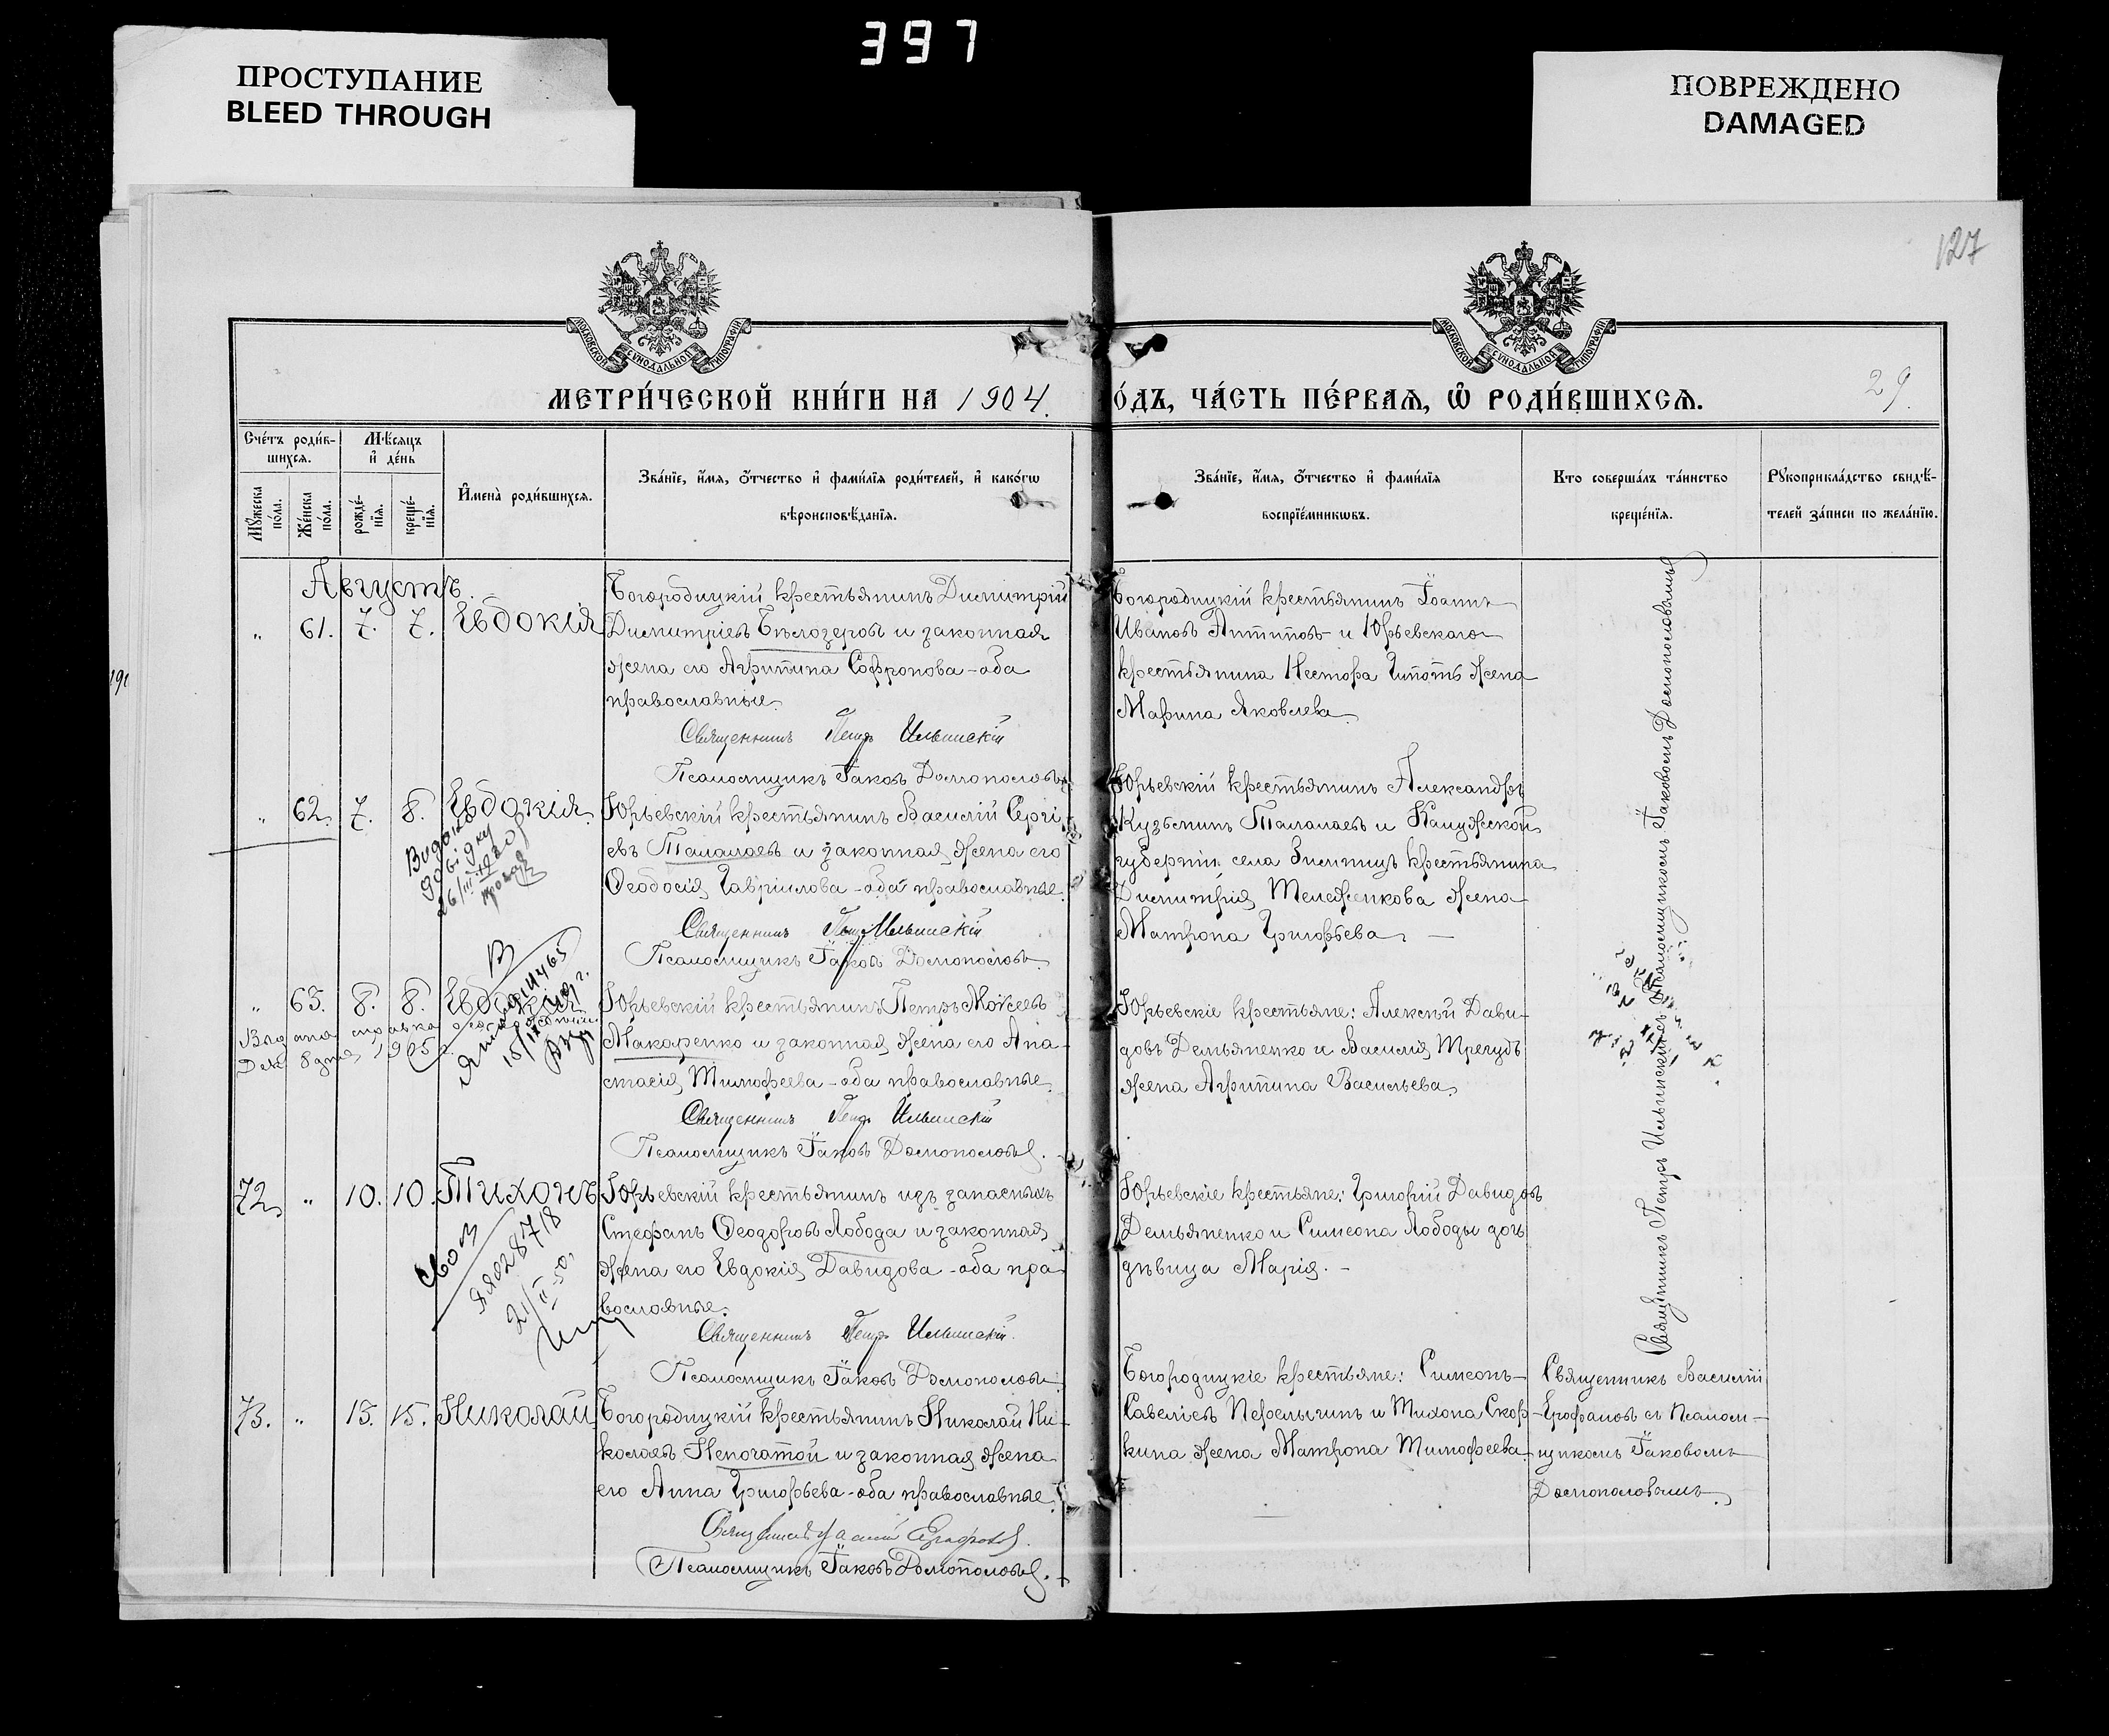 397
ПРОСТУПАНИЕ
BLEED THROUGH
ПОВРЕЖДЕНО
DAMAGED
127
МОСКОВСКОЙ СѴНОДАЛЬНОЙ ТИПОГРАФІИ
МОСКОВСКОЙ СѴНОДАЛЬНОЙ ТИПОГРАФІИ
МЕТРИ́ЧЕСКОЙ КНИ́ГИ НА 1904.
О́ДЪ, ЧА́СТЬ ПЕ́РВАѦ, Ѡ҆ РОДИ́ВШИХСѦ.
29.
Сче́тъ роди́в-
шихсѧ.
Мꙋ́жеска
по́ла.
Же́нска
по́ла.
Мѣ́сѧцъ
и҆ де́нь
рожде́-
нїѧ.
креще́-
нїѧ.
И҆мена̀ роди́вшихсѧ.
Зва́нїе, и҆́мѧ, ѻ҆́тчество и҆ фами́лїѧ роди́телей, и҆ како́гѡ
вѣроисповѣ́данїѧ.
Зва́нїе, и҆́мѧ, ѻ҆́тчество и҆ фами́лїѧ
воспрїе́мникѡвъ.
Кто соверша́лъ та́инство
креще́нїѧ.
Рꙋкоприкла́дство свидѣ́-
телей за́писи по жела́нїю.
Августъ.
" 61. 7. 7. Евдокія
Богородицкій крестьянинъ Димитрій
Димитріевъ Бѣлозеровъ и законная
жена его Агрипина Софронова - оба
православные.
Священникъ Петръ Ильинскій
Псаломщикъ Іаковъ Домонословъ
Богородицкій крестьянинъ Іоаннъ
Ивановъ Антиповъ и Юрьевскаго
крестьянина Нестора жена
Марина Яковлева
" 62. 7. 8. Евдокія.
Видано
довідку
26/III.1920
Юрьевскій крестьянинъ Василій Сергі-
евъ Талалаевъ и законная жена его
Ѳеодосія Гавріилова - оба православные.
Священникъ Петръ Ильинскій
Псаломщикъ Іаковъ Домонословъ.
Юрьевскій крестьянинъ Александръ
Кузьминъ Талалаевъ и Калужской
губерніи села крестьянина
Димитрія Тележенкова жена
Матрона Григорьева. —
" 63. 8. 8. Евдокія
Выдана справка о
Дек 8 дня, 1905
Юрьевскій крестьянинъ Петръ Моѵсеевъ
Макаренко и законная жена его Ана-
стасія Тимофеева - оба православные.
Священникъ Петръ Ильинскій
Псаломщикъ Іаковъ Домонословъ.
Юрьевскіе крестьяне: Алексѣй Дави-
довъ Демьяненко и Василія
жена Агрипина Васильева.
72 " 10. 10. Тихонъ
ЯЯ028718
21/II-50
Юрьевскій крестьянинъ изъ запасныхъ
Стефанъ Ѳеодоровъ Лобода и законная
жена его Евдокія Давидова - оба пра-
вославные.
Священникъ Петръ Ильинскій.
Псаломщикъ Іаковъ Домонословъ
Юрьевскіе крестьяне: Григорій Давидовъ
Демьяненко и Симеона Лободы дочь
дѣвица Марія. -
Священникъ Петръ Ильинскій съ Псаломщикомъ Іаковомъ Домонословомъ
73. " 15. 15. Николай
Богородицкій крестьянинъ Николай Ни-
колаевъ Непочатой и законная жена
его Анна Григорьева - оба православные.
Священникъ Василій Ерофаловъ.
Псаломщикъ Іаковъ Домонословъ.
Богородицкіе крестьяне: Симеонъ
Савеліевъ Перелыгинъ и Тихона Скор-
кина жена Матрона Тимофеева
Священникъ Василій
Ерофаловъ съ Псалом-
щикомъ Іаковомъ
Домонословымъ.